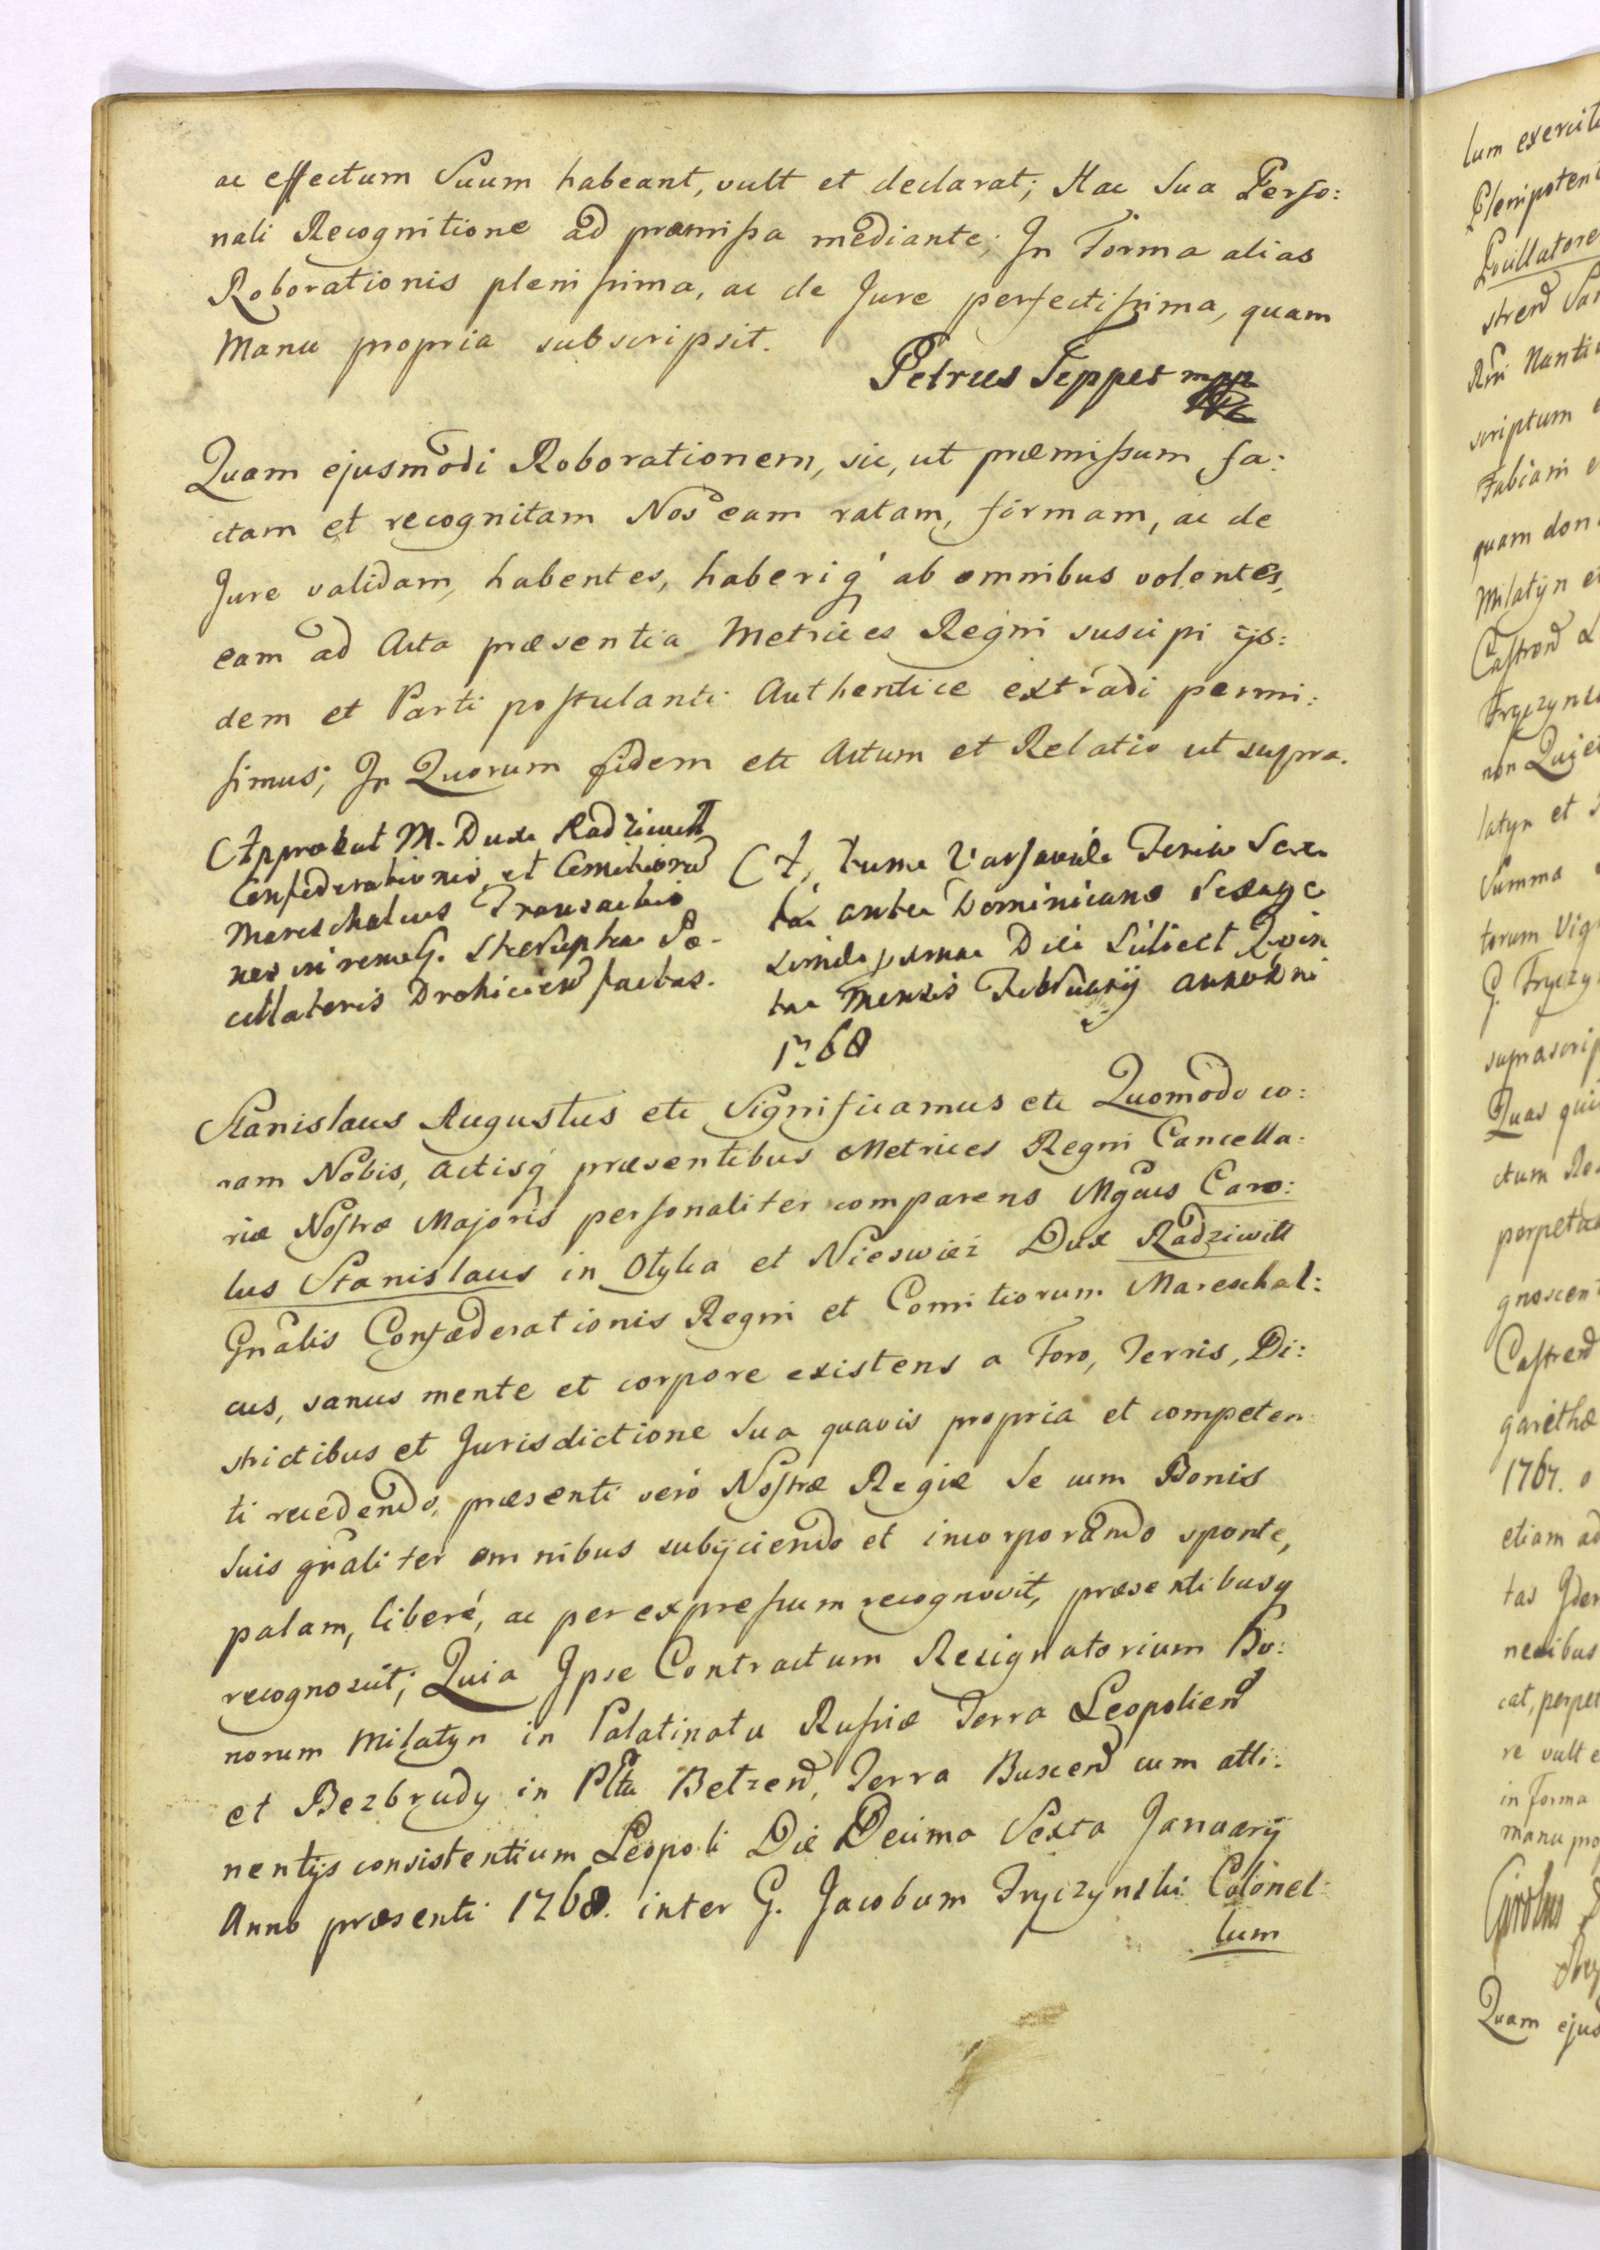 ac effectum Suum habeant, vult et declarat; Hac Sua Perso:
nali Recognitione ad præmissa mediante; In Forma alias
Roborationis plenissima, ac de Jure perfectissima, quam
Manu propria subscripsit.
Petrus Tepper mpp
Quam ejusmodi Roborationem, sic, ut præmissum fa:
ctam et recognitam Nos eam ratam, firmam, ac de
Jure validam, habentes, haberiq́ ab omnibus volentes,
eam ad Acta præsentia Metrices Regni suscipi ijs:
dem et Parti postulanti Authentice extradi permi:
simus; In Quorum fidem etc Actum et Relatio ut supra.
Approbat M. Dux Radziwill
Confederationis et Comitiorũ
Mareschalcus Transactio
nes in rem G. Skrzupka Po-
cillatoris Drohicień factas.
Actum Varsaviæ Feria Sex
ta ante Dominicam Sexage
simalem proxima Die scilicet Quin
ta Mensis Februarij anno Dni
1768
Stanislaus Augustus etc Significamus etc Quomodo co:
ram Nobis, Actisq́ præsentibus Metrices Regni Cancella:
riæ Nostræ Majoris personaliter comparens Mgcus Caro:
lus Stanislaus in Otyka et Nieswież Dux Radziwill
Gnalis Confæderationis Regni et Comitiorum Mareschal:
cus, sanus mente et corpore existens a Foro, Terris, Di:
strictibus et Jurisdictione Sua quavis propria et competen
ti recedendo, præsenti verò Nostræ Regiæ Se cum Bonis
Suis gñaliter omnibus subijciendo et incorporando sponte,
palam, liberé, ac per expressum recognovit, præsentibusq
recognoscit; Quia Ipse Contractum Resignatorium Bo:
norum Milatyn in Palatinatu Russiæ Terra Leopolień
et Bezbrudy in Pltu Betzeń, Terra Busceń cum atti:
nentijs consistentium Leopoli Die Decima Sexta Januarij
Anno præsenti 1768. inter G. Jacobum Fryczynski Colonel:
lum
lum exercit
Plenipoten
Pocillatore
streń
Rńi Nantiu
scriptum
Fabiani
quam don
Milatyn et
Castreń
Fryczyns
non
latyn et
Summa
torum Vig
G. Fryczy
suprascrip
Quas qui
ctum Re
perpetu
gnoscen
Castreń
garethæ
1767.
etiam ad
tas Ide
necibus
cat, perpet
re vult e
in forma
manu prop
Carolus
Quam ejus